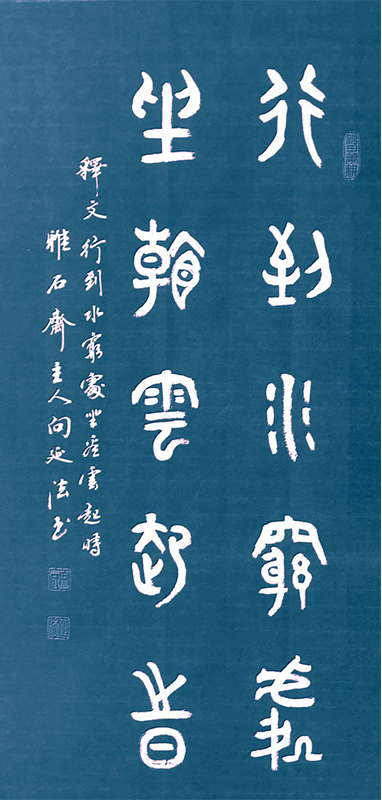 行到水窮處
坐看雲起時
釋文行到水窮處坐看雲起時
雅石齋主人向延法書